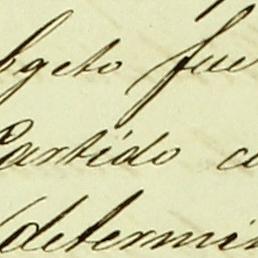 bgeto fue
Partido co
determin